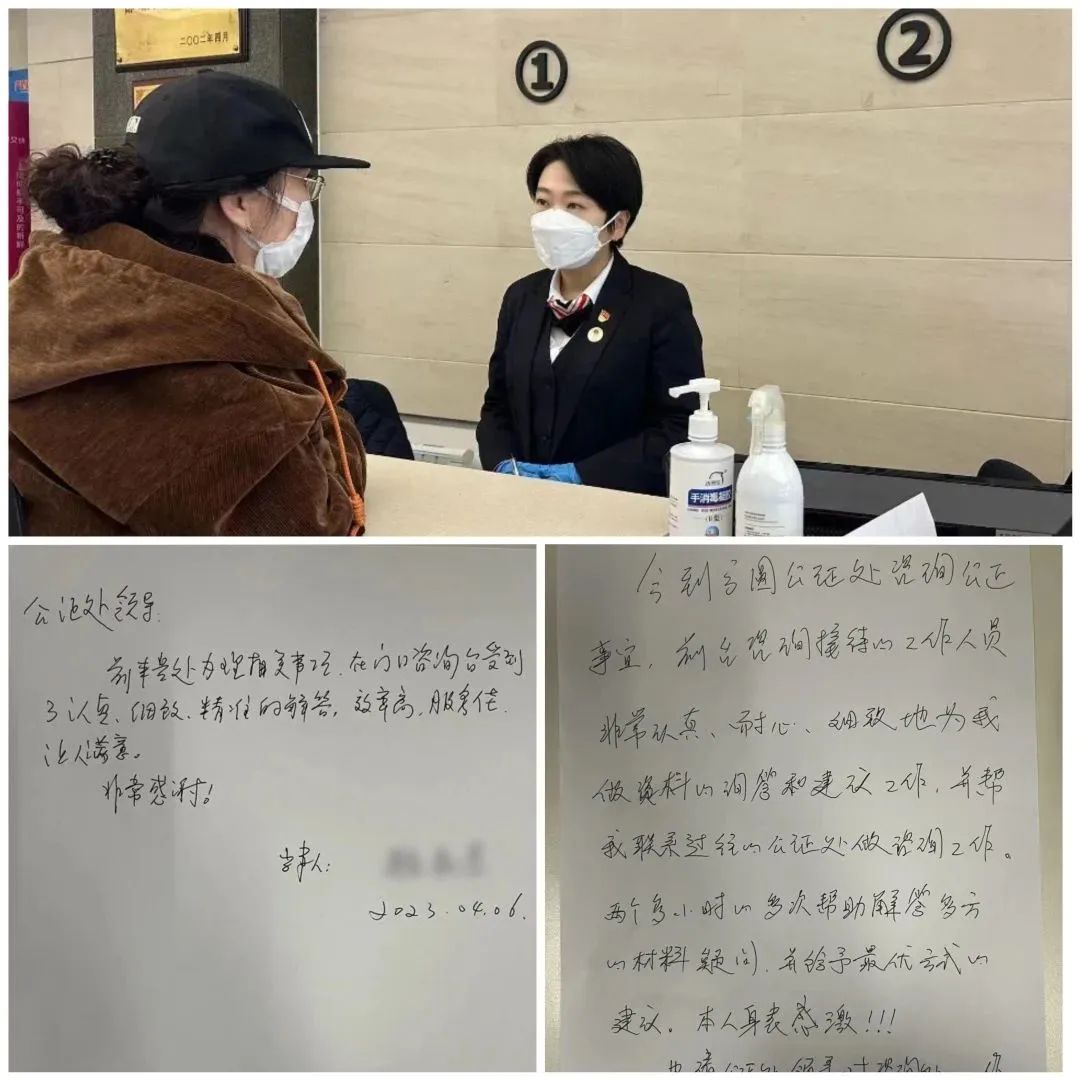 二〇〇二年四月
①
②
手消毒凝胶
公证处领导:
前来贵处办理相关事项,在门口咨询台受到
了认真、细致、精准的解答。效率高,服务佳,
让人满意。
非常感谢!
2023.04.06.
今到方圆公证处咨询公证
事宜,前台咨询接待的工作人员
非常认真、耐心、细致地为我
做资料的询答和建议工作,并帮
我联系过往的公证处做咨询工作。
两个多小时的多次帮助解答多方
的材料疑问,并给予最优方式的
建议。本人身表感激!!!